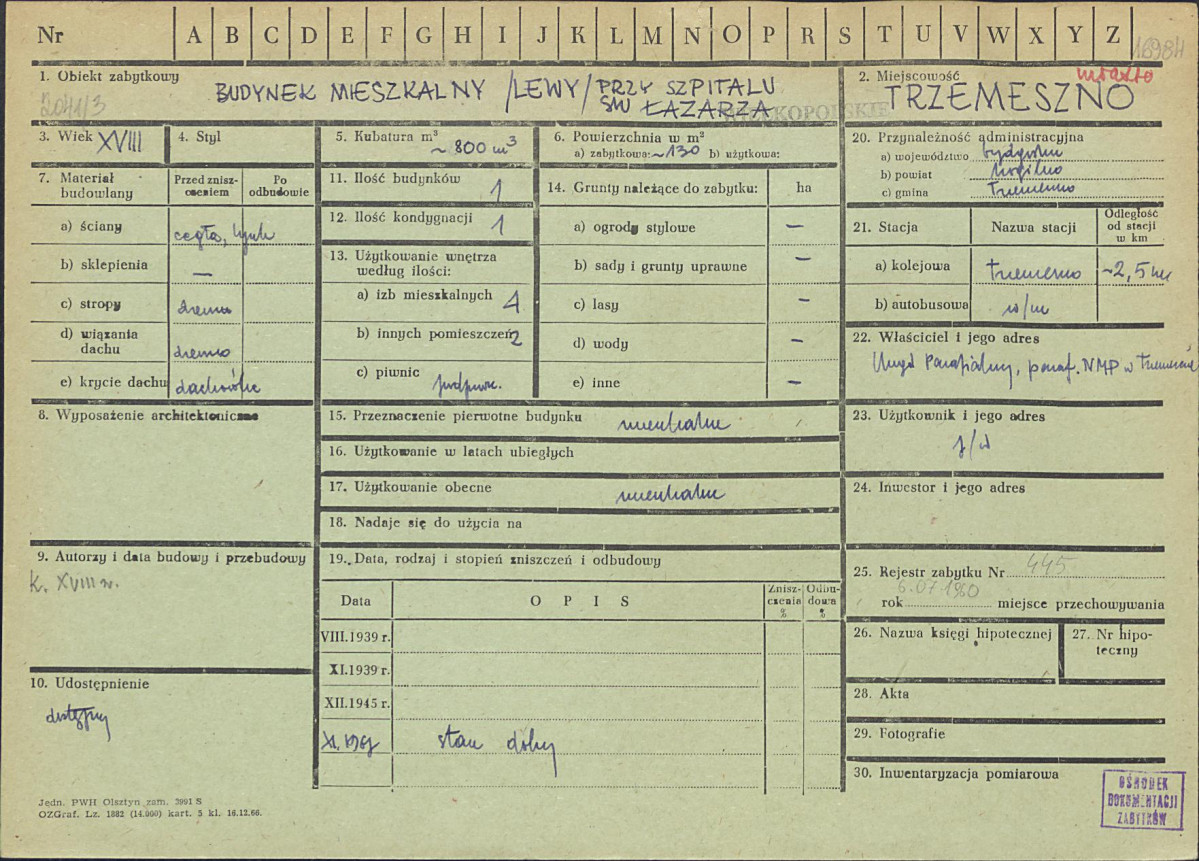 Nr A B C D E F G H I J K L M N O P R S T U V W X Y Z
16984
1. Obiekt zabytkowy
BUDYNEK MIESZKALNY /LEWY/ PRZY SZPITALU
ŚW ŁAZARZA
2. Miejscowość
miasto
TRZEMESZNO
3. Wiek XVIII
4. Styl
5. Kubatura m³
~ 800 m³
6. Powierzchnia w m²
a) zabytkowa: ~130 b) użytkowa:
7. Materiał
budowlany
Przed znisz-
czeniem
Po
odbudowie
a) ściany
cegła, tynk
b) sklepienia
—
c) stropy
drewno
d) wiązania
dachu
drewno
e) krycie dachu
dachówka
8. Wyposażenie architektoniczne
9. Autorzy i data budowy i przebudowy
k. XVIII w.
10. Udostępnienie
dostępny
11. Ilość budynków
1
12. Ilość kondygnacji
1
13. Użytkowanie wnętrza
według ilości:
a) izb mieszkalnych
4
b) innych pomieszczeń
2
c) piwnic
podpiwn.
14. Grunty należące do zabytku:
ha
a) ogrody stylowe
—
b) sady i grunty uprawne
—
c) lasy
—
d) wody
—
e) inne
—
15. Przeznaczenie pierwotne budynku
mieszkalne
16. Użytkowanie w latach ubiegłych
17. Użytkowanie obecne
mieszkalne
18. Nadaje się do użycia na
19. Data, rodzaj i stopień zniszczeń i odbudowy
Data
O P I S
Znisz-
czenia
%
Odbu-
dowa
%
VIII.1939 r.
XI.1939 r.
XII.1945 r.
stan dobry
20. Przynależność administracyjna
a) województwo bydgoskie
b) powiat Mogilno
c) gmina Trzemeszno
21. Stacja
Nazwa stacji
Odległość
od stacji
w km
a) kolejowa
Trzemeszno
~2,5 km
b) autobusowa
w/m
22. Właściciel i jego adres
Urząd Parafialny, paraf. NMP w Trzemesznie
23. Użytkownik i jego adres
j/w
24. Inwestor i jego adres
25. Rejestr zabytku Nr 445
6.07.1960
rok miejsce przechowywania
26. Nazwa księgi hipotecznej
27. Nr hipo-
teczny
28. Akta
29. Fotografie
30. Inwentaryzacja pomiarowa
OŚRODEK
DOKUMENTACJI
ZABYTKÓW
Jedn. PWH Olsztyn zam. 3991 S
OZGraf. Lz. 1882 (14.000) kart. 5 kl. 16.12.66.